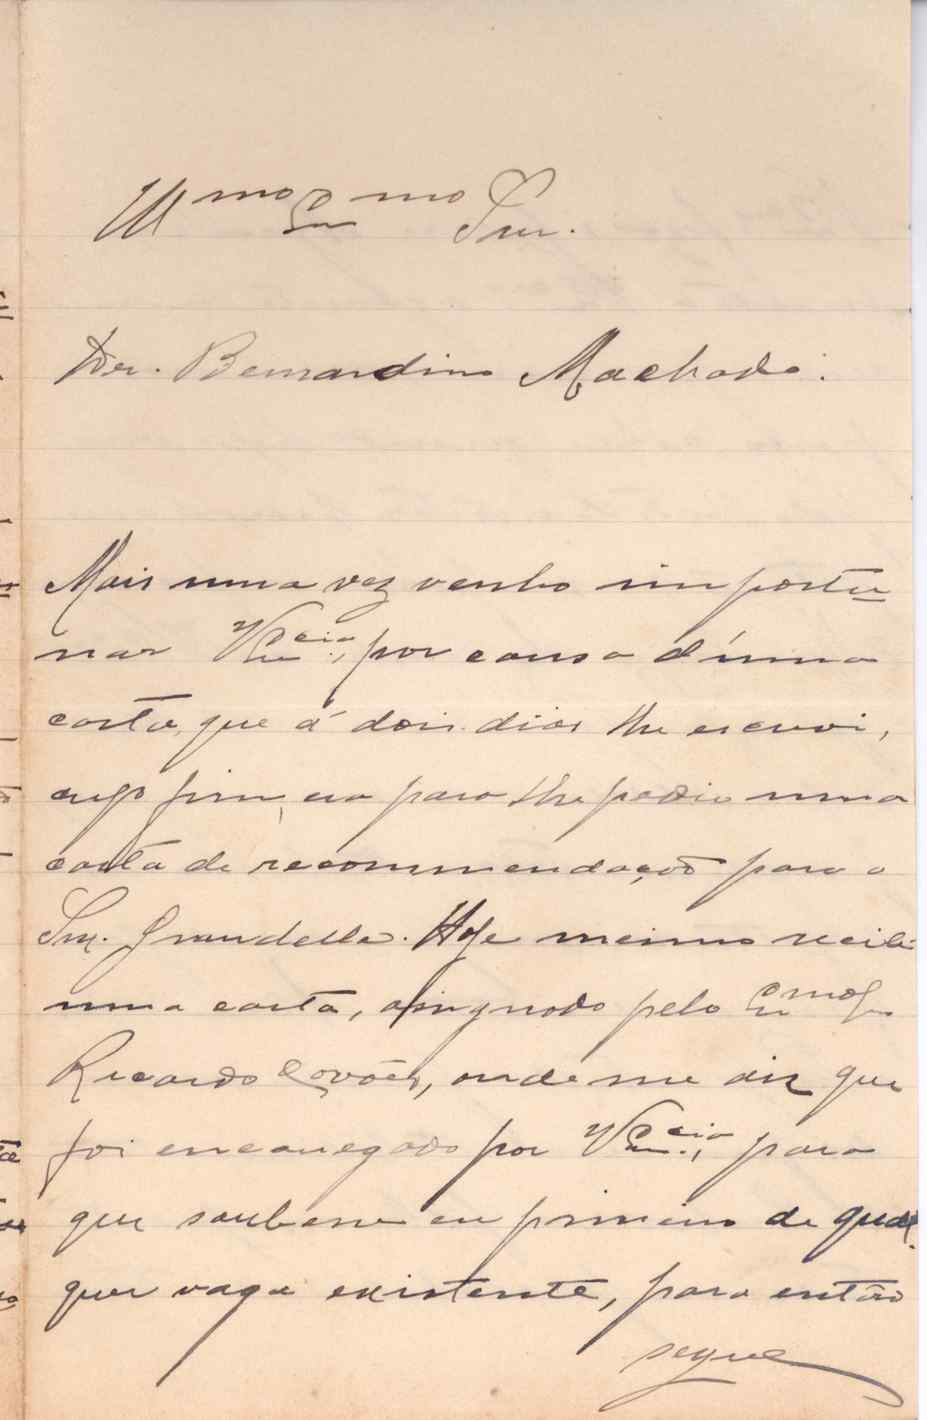 Illmo Exmo Snr.
Dr. Bernardino Machado.
Mais uma vez venho importu-
nar V. Excia., por causa d'uma
carta, que á dois dias lhe escrevi,
cujo fim, era para lhe pedir uma
carta de recommendação para o
Snr. Grandella. Hoje mesmo recebi
uma carta, assignada pelo Exmo Snr
Ricardo Covões, onde me diz que
foi encarregado por V. Excia., para
que soubesse eu primeiro de qual-
quer vaga existente, para então
segue